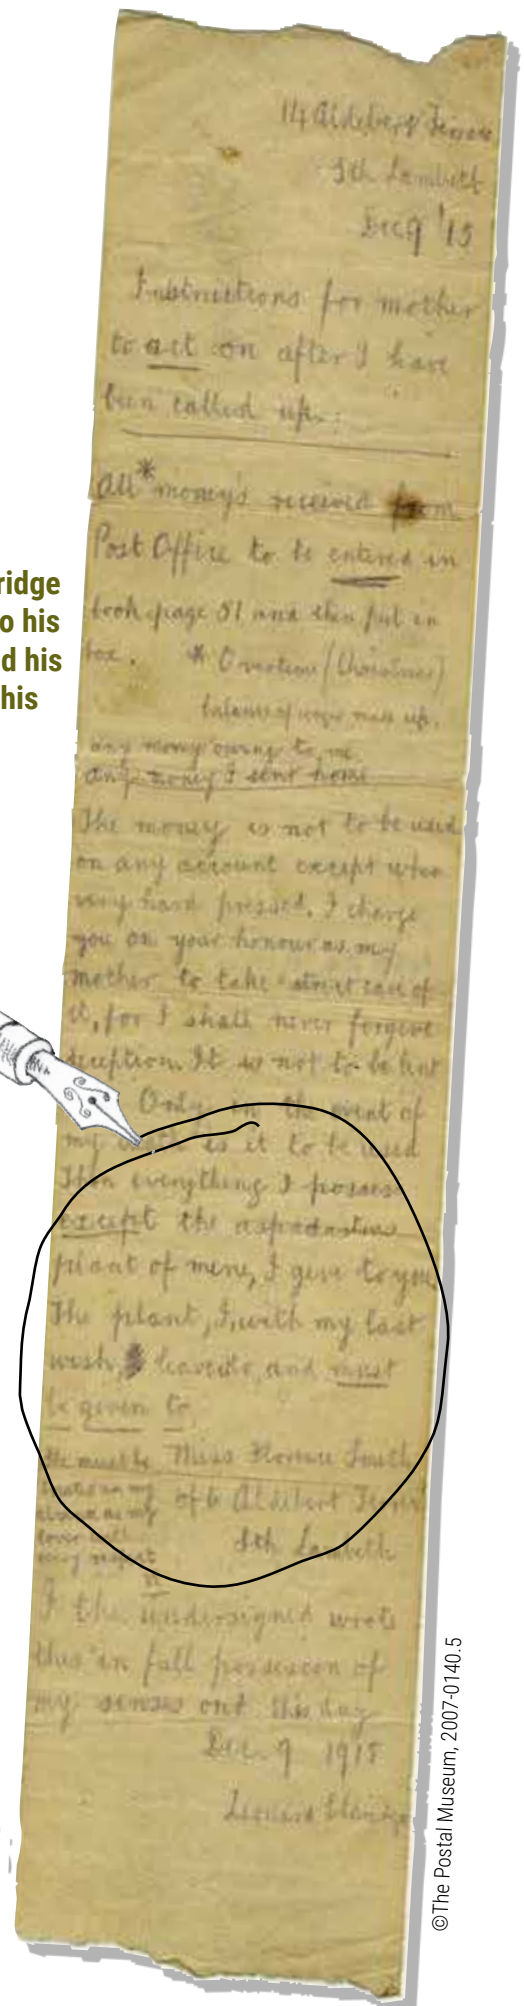 14 Aldebert Terrace
Sth Lambeth
Dec 9 '15
Instructions for mother
to act on after I have
been called up:
All * money's received from
Post Office to be entered in
book page 51 and then put in
box. * Overtime (Christmas)
balance of wages made up.
any money owing to me
any money I sent home
The money is not to be used
on any account except when
very hard pressed. I charge
you on your honour as my
mother to take strict care of
it, for I shall never forgive
deception. It is not to be lent
Only in the event of
my death is it to be used
Then everything I possess
except the aspidastra
plant of mine, I give to you.
The plant, I, with my last
wish, leave to, and must
be given to
Miss Florence Smith
of 6 Aldebert Terrace
Sth Lambeth
She must be
always as my
lover with
every respect
I the undersigned wrote
this in full possession of
my senses on this day
Dec. 9 1915
Leonard Eldridge
ridge
o his
d his
his
©The Postal Museum, 2007-0140.5